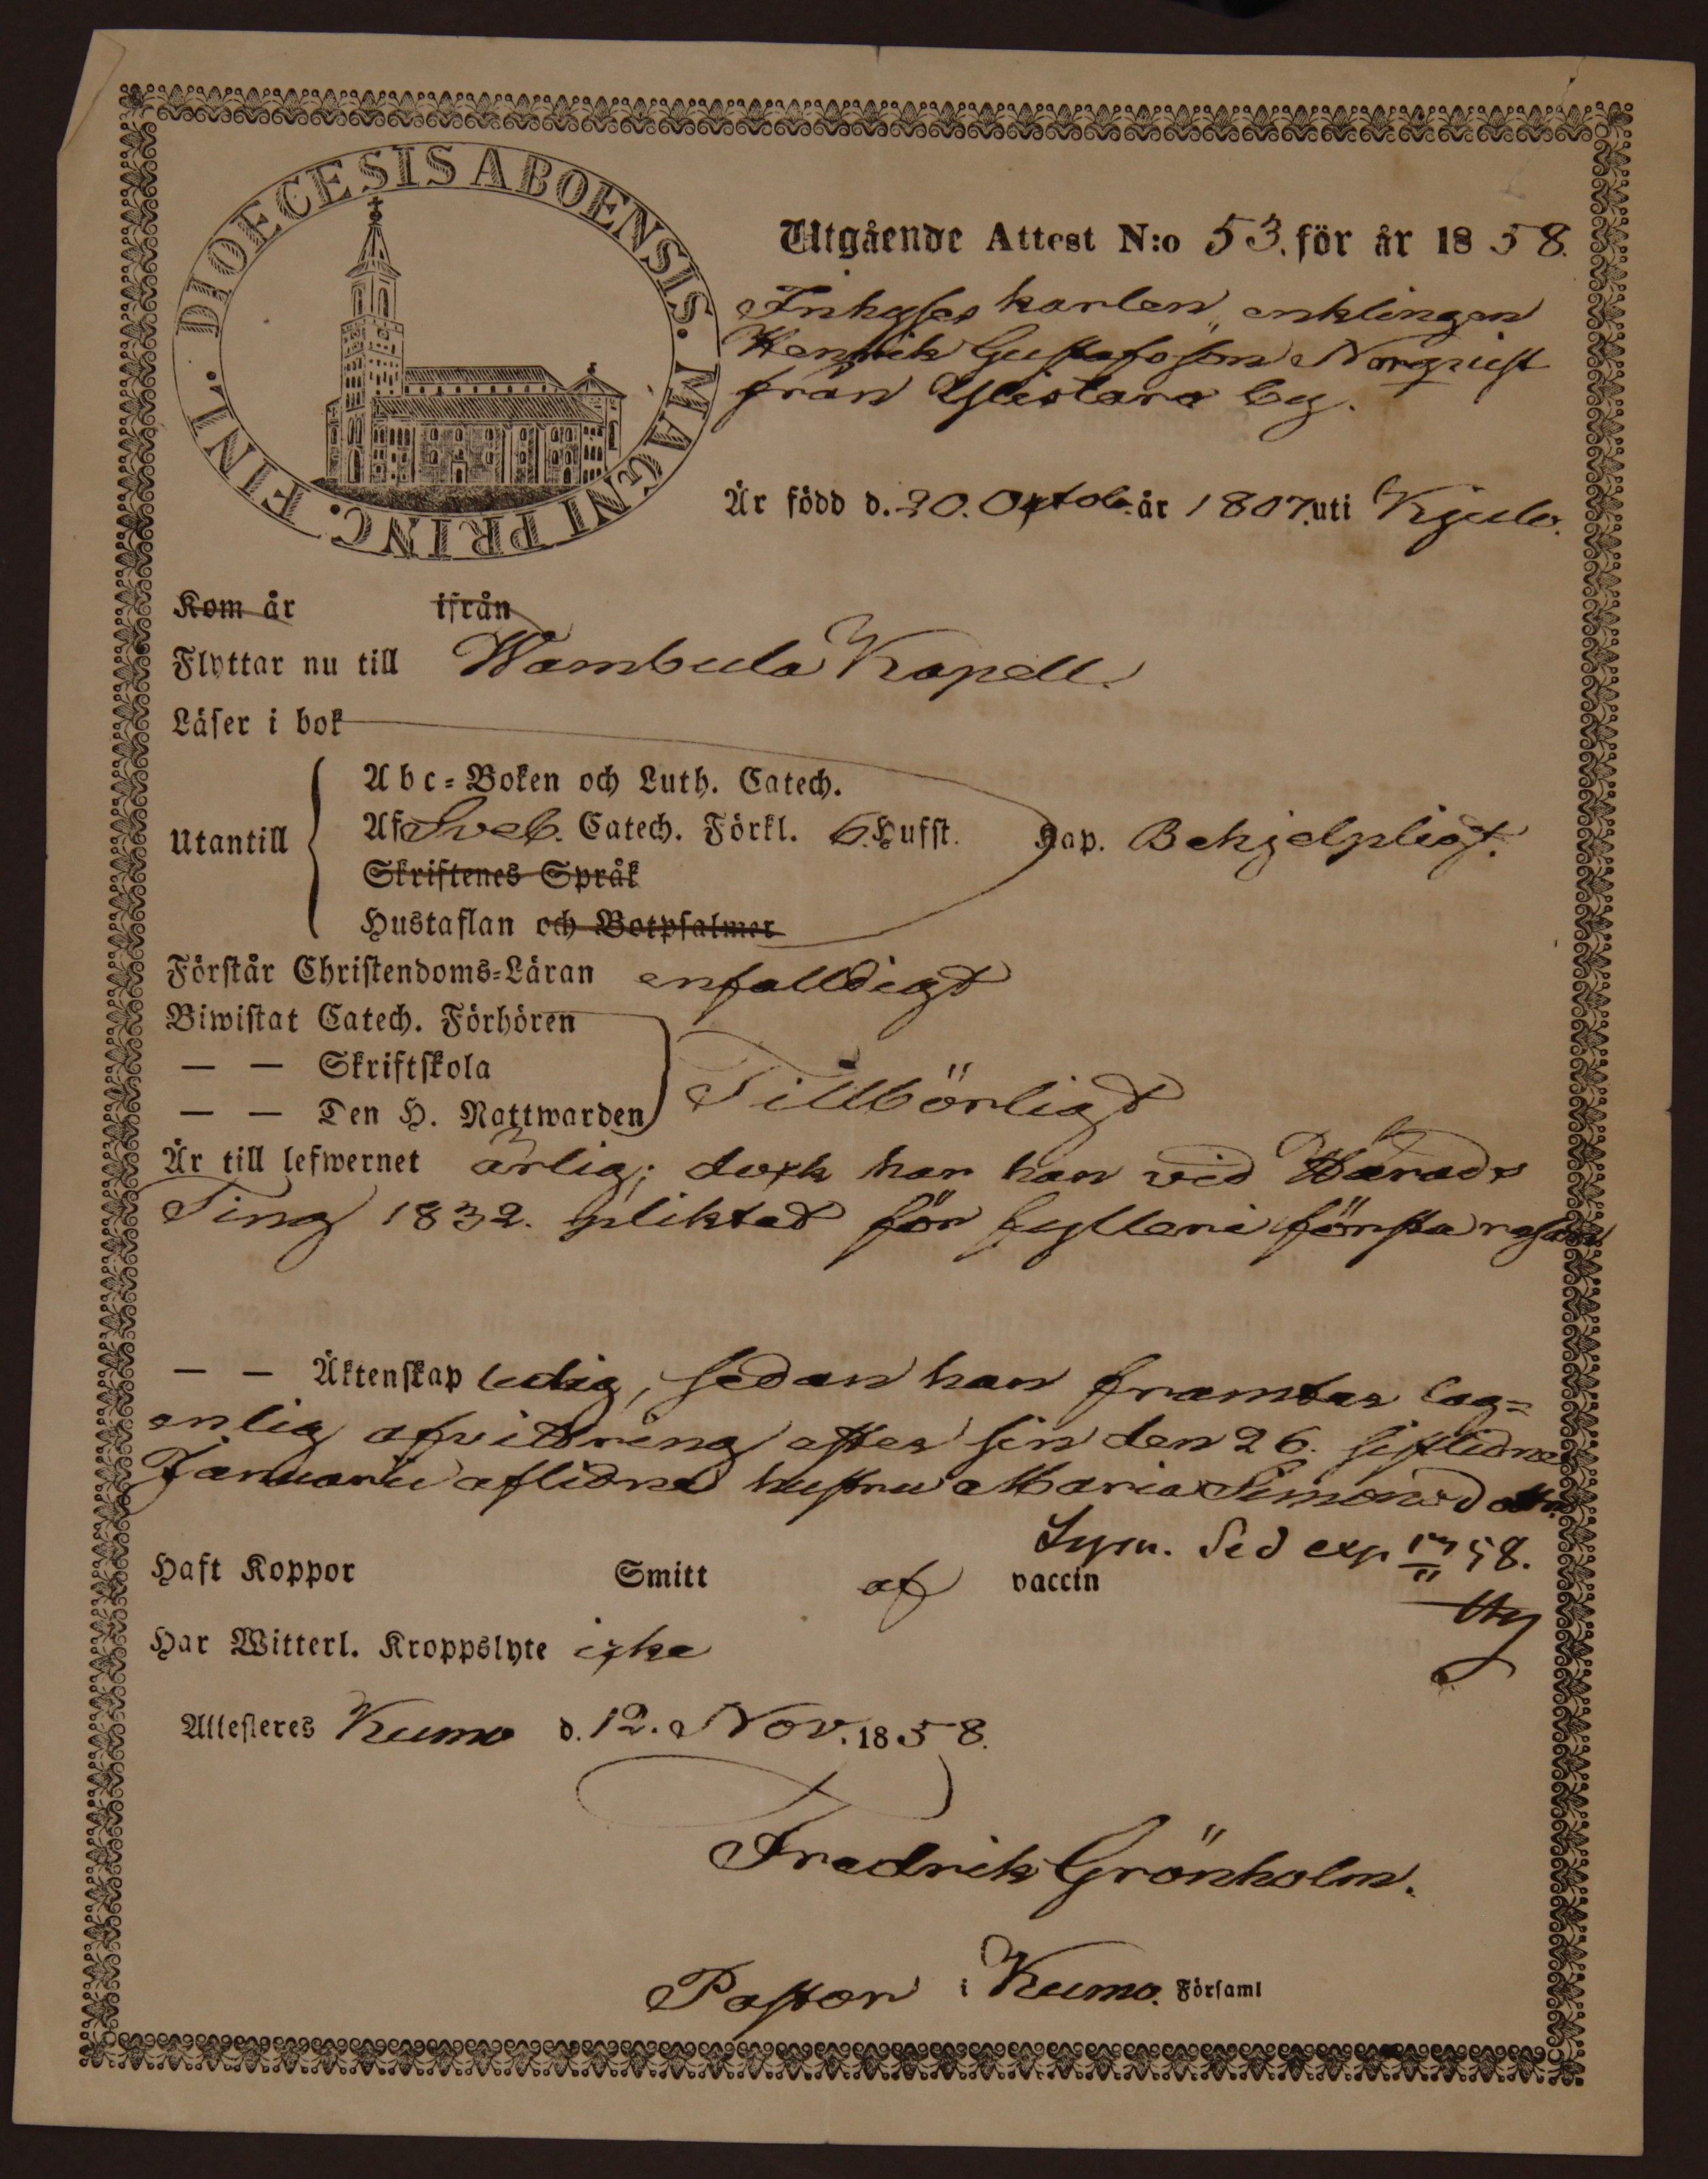 DIOECESIS ABOENSIS. MAGNI PRINC. FINL.
Utgående Attest N:o 53. för år 1858.
Inhyses karlen, enklingen
Henrik Gustafsson Norqvist
från Ylistaro by.
Är född d. 20. Octob. år 1807. uti Kjulo.
Kom år ifrån
Flyttar nu till Wambula Kapell.
Läser i bok
Utantill
Abc-Boken och Luth. Catech.
Af Sveb. Catech. Förkl. 6. Hufst. Kap. Behjelpligt.
Skriftenes Språk
Hustaflan och Botpsalmer
Förstår Christendoms-Läran enfalldigt
Biwistat Catech. Förhören
— — Skriftskola
— — Den H. Nattwarden Tillbörligt
Är till lefwernet ärlig; dock har han vid Härads
Ting 1832. pliktat för fylleri första resan
— — Äktenskap ledig, sedan han framtes lag-
enlig afvittring efter sin den 26. sistlidne
Januarii aflidne hustru Maria Simonsdotter.
Sed exp 58.
Haft Koppor Smitt af vaccin
Har Witterl. Kroppslyte icke
Attesteres Kumo d. 12. Nov. 1858.
Fredrik Grönholm.
Pastor i Kumo. Församl